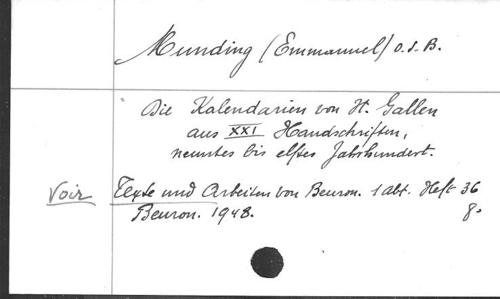 Munding (Emmanuel) O.S.B.
Die Kalendarien von St. Gallen
aus XXI Handschriften,
neuntes bis elftes Jahrhundert.
Voir Texte und Arbeiten von Beuron. 1 abt. Heft 36
Beuron. 1948. 8°